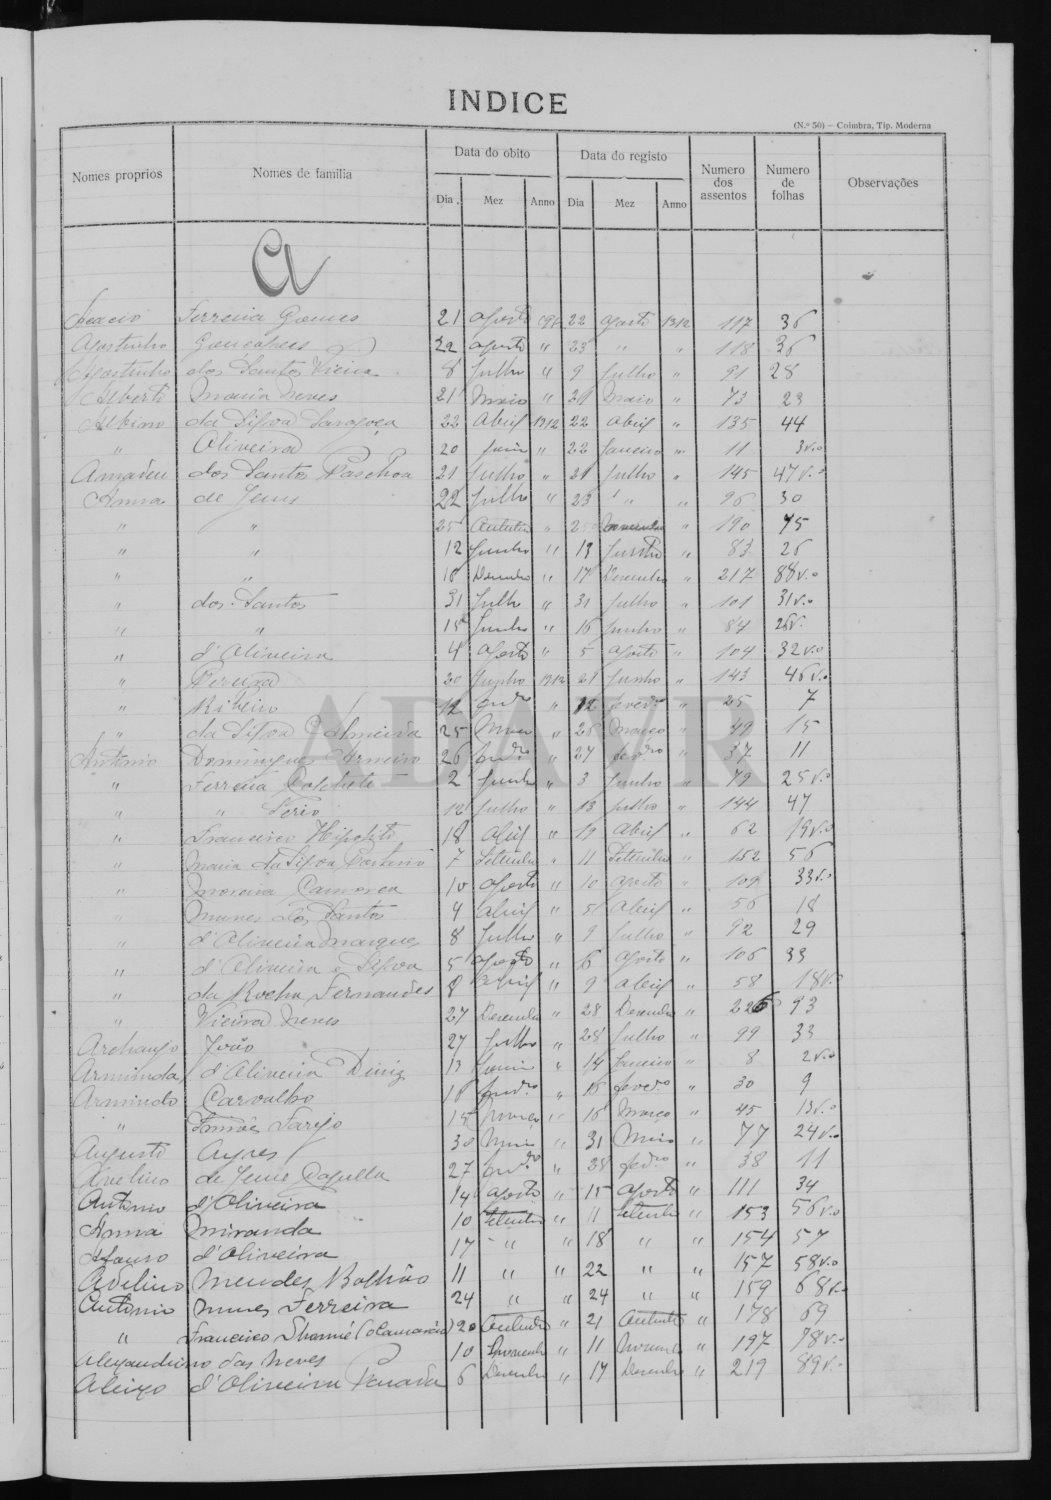 INDICE
(N.º 50) — Coimbra, Tip. Moderna
Nomes proprios Nomes de familia Data do obito Data do registo Numero dos assentos Numero de folhas Observações
Dia Mez Anno Dia Mez Anno
A
Acacio Ferreira Gomes 21 Agosto 22 Agosto 1912 117 36
Agostinho Gonçalves 22 Agosto " 23 " " 118 36
Agostinho dos Santos Vieira 8 Julho " 9 Julho " 91 28
Alberto Maria Neves 21 Maio " 21 Maio " 73 23
Albino da Silva 22 Abril 1912 22 Abril " 135 44
" Oliveira 20 " 22 Janeiro " 11 3 v.o
Amadeu dos Santos Paschoa 21 Julho " 21 Julho " 145 47 v.o
Anna de Jesus 22 Julho " 23 " " 96 30
" " 25 Outubro " 25 " 190 75
" " 12 Junho " 13 " 83 26
" " 16 Dezembro " 17 Dezembro " 217 88 v.o
" dos Santos 31 Julho " 31 Julho " 101 31 v.o
" " 15 Junho " 16 Junho " 84 26 v.
" d'Oliveira 4 Agosto " 5 Agosto " 104 32 v.o
" Pereira 20 Junho 1912 21 Junho " 143 46 v.o
" Ribeiro 12 " 12 fever.o " 25 7
" da Silva d'Almeida 25 " 26 Março " 49 15
Antonio Domingues 26 " 27 fev.ro " 37 11
" Ferreira 2 Junho " 3 Junho " 79 25 v.o
" " 12 Julho " 13 Julho " 144 47
" Francisco Hipolito 18 Abril " 19 Abril " 62 19 v.o
" Maria da Silva 7 Setembro " 11 Setembro " 152 56
" Moreira 10 Agosto " 10 Agosto " 109 33 v.o
" Nunes dos Santos 4 Abril " 5 Abril " 56 18
" d'Oliveira Marques 8 Julho " 9 Julho " 92 29
" d'Oliveira e Silva 5 Agosto " 6 Agosto " 106 33
" da Rocha Fernandes 8 Abril " 9 Abril " 58 18 v.o
" Vieira Neves 27 Dezembro " 28 Dezembro " 226 93
Archanjo João 27 Julho " 28 Julho " 99 33
Arminda d'Oliveira Diniz 13 " 14 Janeiro " 8 2 v.o
Armindo Carvalho 18 " 18 fever.o " 30 9
" Simões 15 Março " 16 Março " 45 13 v.o
Augusto Ayres 30 Maio " 31 Maio " 77 24 v.o
Avelino de Jesus Capella 27 " 28 fev.ro " 38 11
Antonio d'Oliveira 14 Agosto " 15 Agosto " 111 34
Anna Miranda 10 Setembro " 11 Setembro " 153 56 v.o
Afonso d'Oliveira 17 " " 18 " " 154 57
Avelino Mendes Bolhão 11 " " 22 " " 157 58 v.o
Antonio Nunes Ferreira 24 " " 24 " " 159 68 v.o
" Francisco 20 Outubro " 21 Outubro " 178 69
Alexandrino das Neves 10 Novembro " 11 Novembro " 197 78 v.o
Aleixo d'Oliveira 6 Dezembro " 17 Dezembro " 219 89 v.o
ADAVR